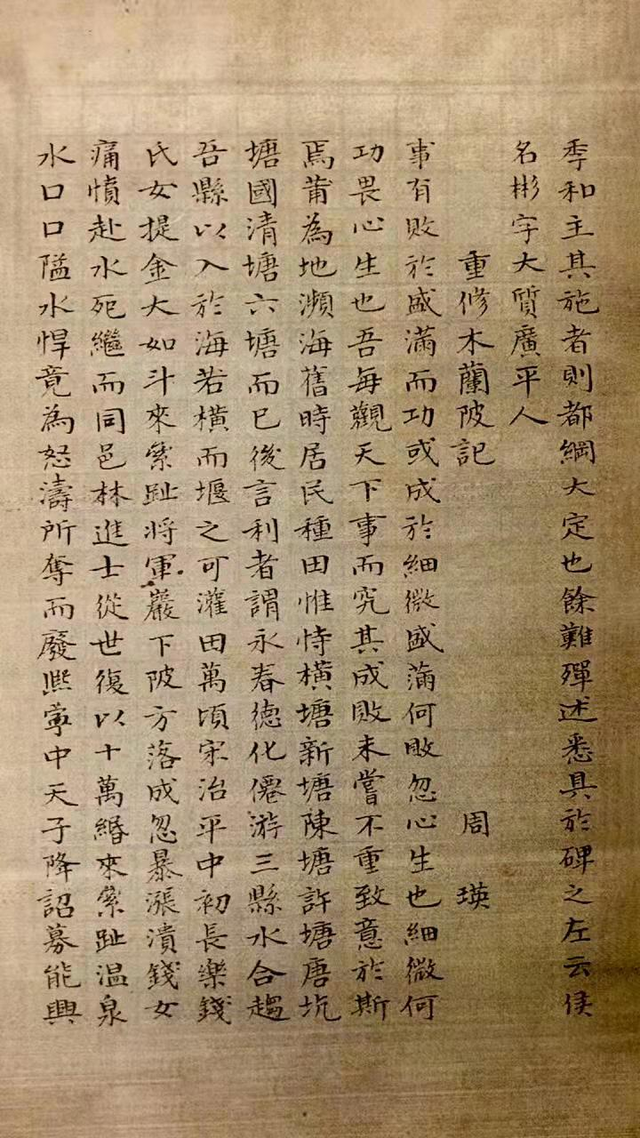 季和主其施者則都綱大定也餘難殫述悉具於碑之左云侯
名彬字大質廣平人
重修木蘭陂記 周瑛
事有敗於盛滿而功或成於細微盛滿何敗忽心生也細微何
功畏心生也吾每觀天下事而究其成敗未嘗不重致意於斯
焉莆為地瀕海舊時居民種田惟恃橫塘新塘陳塘許塘唐坑
塘國清塘六塘而已後言利者謂永春德化僊游三縣水合趨
吾縣以入於海若橫而堰之可灌田萬頃宋治平中初長樂錢
氏女提金大如斗來築趾將軍巖下陂方落成忽暴漲潰錢女
痛憤赴水死繼而同邑林進士從世復以十萬緡來築趾溫泉
水口口隘水悍竟為怒濤所奪而廢熙寧中天子降詔募能興